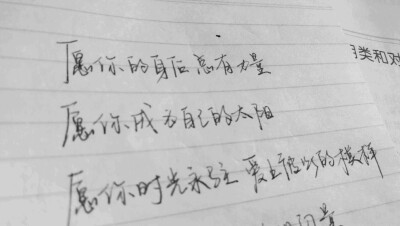 愿你的身后总有力量
愿你成为自己的太阳
愿你时光永驻 爱上彼此的模样
类和对